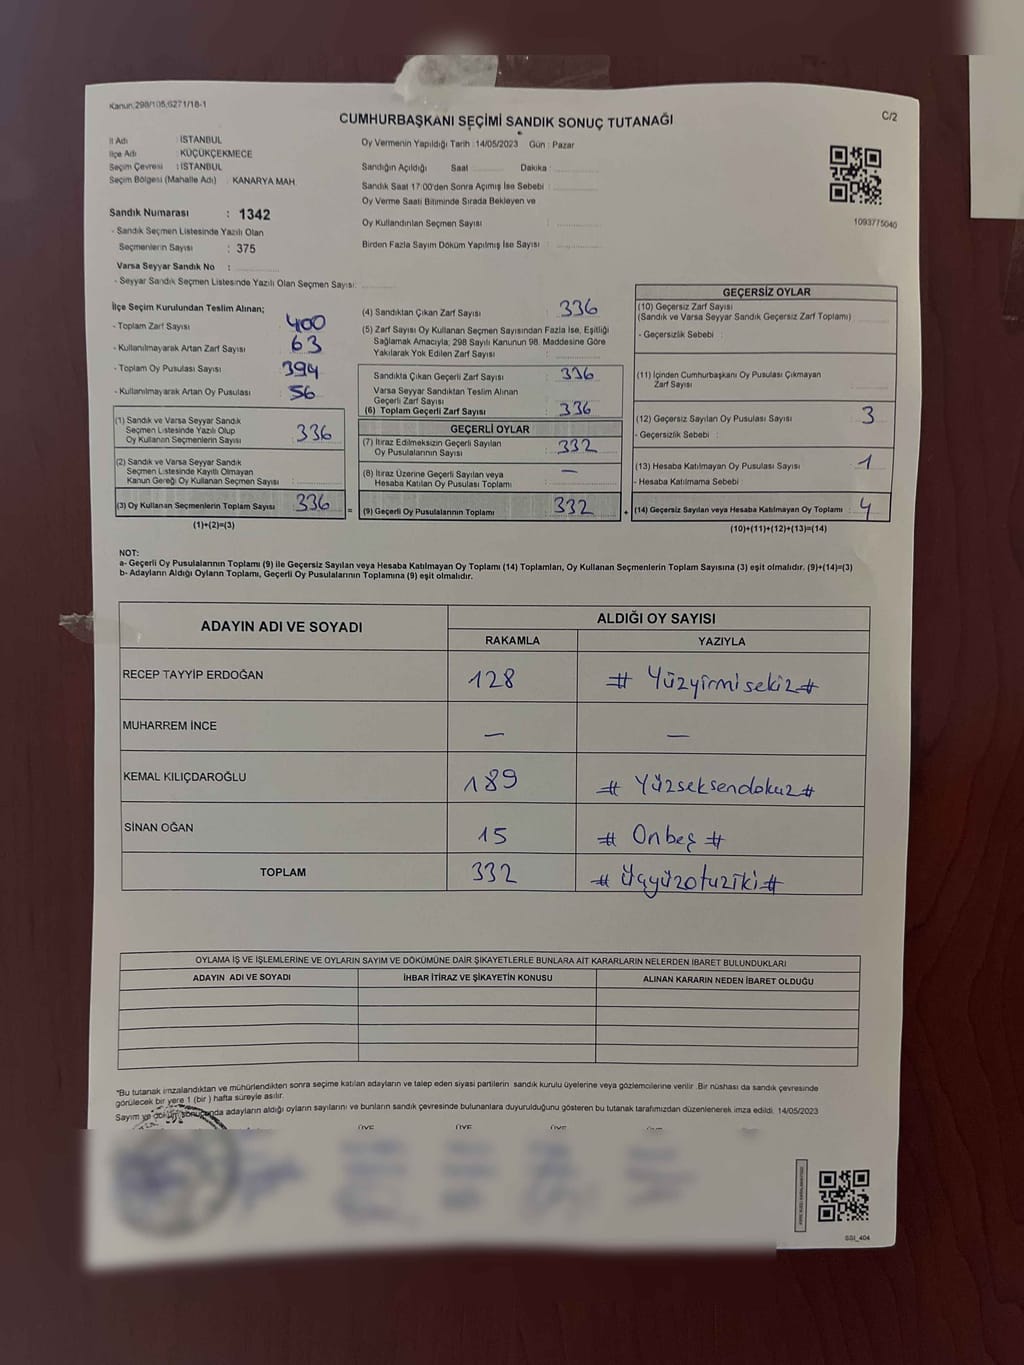 Kanun:298/105;6271/18-1
CUMHURBAŞKANI SEÇİMİ SANDIK SONUÇ TUTANAĞI
C/2
İl Adı : İSTANBUL
İlçe Adı : KÜÇÜKÇEKMECE
Seçim Çevresi : İSTANBUL
Seçim Bölgesi (Mahalle Adı) : KANARYA MAH.
Sandık Numarası : 1342
- Sandık Seçmen Listesinde Yazılı Olan
Seçmenlerin Sayısı : 375
Varsa Seyyar Sandık No :
- Seyyar Sandık Seçmen Listesinde Yazılı Olan Seçmen Sayısı:
Oy Vermenin Yapıldığı Tarih : 14/05/2023 Gün : Pazar
Sandığın Açıldığı Saat Dakika :
Sandık Saat 17:00'den Sonra Açımış İse Sebebi :
Oy Verme Saati Bitiminde Sırada Bekleyen ve
Oy Kullandırılan Seçmen Sayısı :
Birden Fazla Sayım Döküm Yapılmış İse Sayısı :
1093775040
İlçe Seçim Kurulundan Teslim Alınan;
- Toplam Zarf Sayısı : 400
- Kullanılmayarak Artan Zarf Sayısı : 63
- Toplam Oy Pusulası Sayısı : 394
- Kullanılmayarak Artan Oy Pusulası : 56
(1) Sandık ve Varsa Seyyar Sandık
Seçmen Listesinde Yazılı Olup
Oy Kullanan Seçmenlerin Sayısı : 336
(2) Sandık ve Varsa Seyyar Sandık
Seçmen Listesinde Kayıtlı Olmayan
Kanun Gereği Oy Kullanan Seçmen Sayısı :
(3) Oy Kullanan Seçmenlerin Toplam Sayısı : 336
(1)+(2)=(3)
(4) Sandıktan Çıkan Zarf Sayısı : 336
(5) Zarf Sayısı Oy Kullanan Seçmen Sayısından Fazla İse, Eşitliği
Sağlamak Amacıyla; 298 Sayılı Kanunun 98. Maddesine Göre
Yakılarak Yok Edilen Zarf Sayısı :
Sandıkta Çıkan Geçerli Zarf Sayısı : 336
Varsa Seyyar Sandıktan Teslim Alınan
Geçerli Zarf Sayısı :
(6) Toplam Geçerli Zarf Sayısı : 336
GEÇERLİ OYLAR
(7) İtiraz Edilmeksizin Geçerli Sayılan
Oy Pusulalarının Sayısı : 332
(8) İtiraz Üzerine Geçerli Sayılan veya
Hesaba Katılan Oy Pusulası Toplamı : —
= (9) Geçerli Oy Pusulalarının Toplamı : 332
GEÇERSİZ OYLAR
(10) Geçersiz Zarf Sayısı
(Sandık ve Varsa Seyyar Sandık Geçersiz Zarf Toplamı)
- Geçersizlik Sebebi :
(11) İçinden Cumhurbaşkanı Oy Pusulası Çıkmayan
Zarf Sayısı :
(12) Geçersiz Sayılan Oy Pusulası Sayısı : 3
- Geçersizlik Sebebi :
(13) Hesaba Katılmayan Oy Pusulası Sayısı : 1
- Hesaba Katılmama Sebebi :
+ (14) Geçersiz Sayılan veya Hesaba Katılmayan Oy Toplamı : 4
(10)+(11)+(12)+(13)=(14)
NOT:
a- Geçerli Oy Pusulalarının Toplamı (9) ile Geçersiz Sayılan veya Hesaba Katılmayan Oy Toplamı (14) Toplamları, Oy Kullanan Seçmenlerin Toplam Sayısına (3) eşit olmalıdır. (9)+(14)=(3)
b- Adayların Aldığı Oyların Toplamı, Geçerli Oy Pusulalarının Toplamına (9) eşit olmalıdır.
ADAYIN ADI VE SOYADI
ALDIĞI OY SAYISI
RAKAMLA YAZIYLA
RECEP TAYYİP ERDOĞAN 128 # Yüzyirmisekiz#
MUHARREM İNCE — —
KEMAL KILIÇDAROĞLU 189 # Yüzseksendokuz#
SİNAN OĞAN 15 # Onbeş #
TOPLAM 332 # Üçyüzotuziki#
OYLAMA İŞ VE İŞLEMLERİNE VE OYLARIN SAYIM VE DÖKÜMÜNE DAİR ŞİKAYETLERLE BUNLARA AİT KARARLARIN NELERDEN İBARET BULUNDUKLARI
ADAYIN ADI VE SOYADI İHBAR İTİRAZ VE ŞİKAYETİN KONUSU ALINAN KARARIN NEDEN İBARET OLDUĞU
"Bu tutanak imzalandıktan ve mühürlendikten sonra seçime katılan adayların ve talep eden siyasi partilerin sandık kurulu üyelerine veya gözlemcilerine verilir. Bir nüshası da sandık çevresinde
görülecek bir yere 1 (bir) hafta süreyle asılır.
Sayım ve döküm sonucunda adayların aldığı oyların sayılarını ve bunların sandık çevresinde bulunanlara duyurulduğunu gösteren bu tutanak tarafımızdan düzenlenerek imza edildi. 14/05/2023
ÜYE ÜYE ÜYE
SSI_404